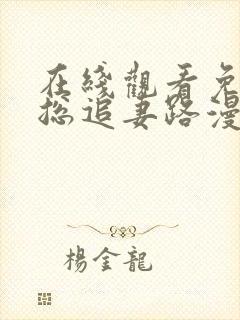 在綫觀看免
總追妻路漫
楊金龍